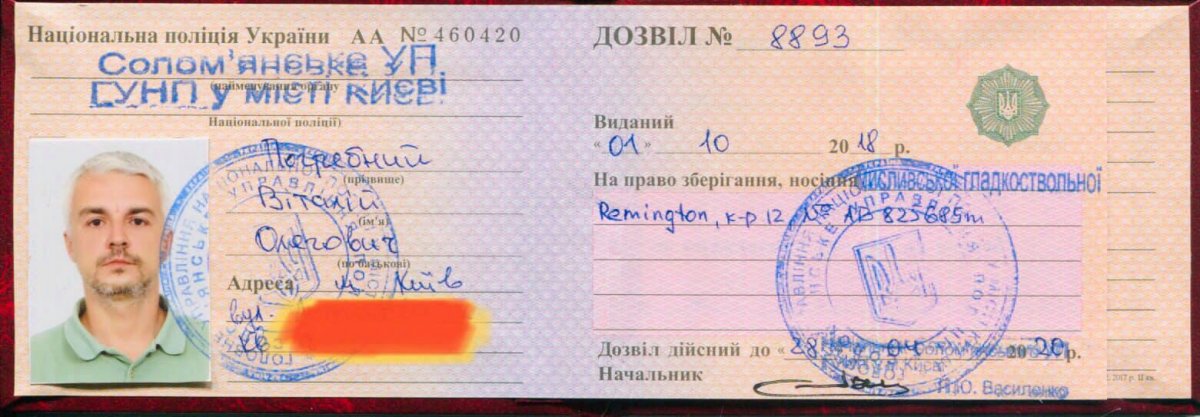 Національна поліція України АА № 460420
Солом'янське УП
ГУНП у місті Києві
(найменування органу
Національної поліції)
Погребний
(прізвище)
Віталій
(ім'я)
Олегович
(по батькові)
Адреса м. Київ
вул.
кв
ДОЗВІЛ № 8893
Виданий
"01" 10 2018 р.
На право зберігання, носіння мисливської гладкоствольної
Remington, к-р 12 №
Дозвіл дійсний до "28" 04 2020 р.
Начальник
П.Ю. Василенко